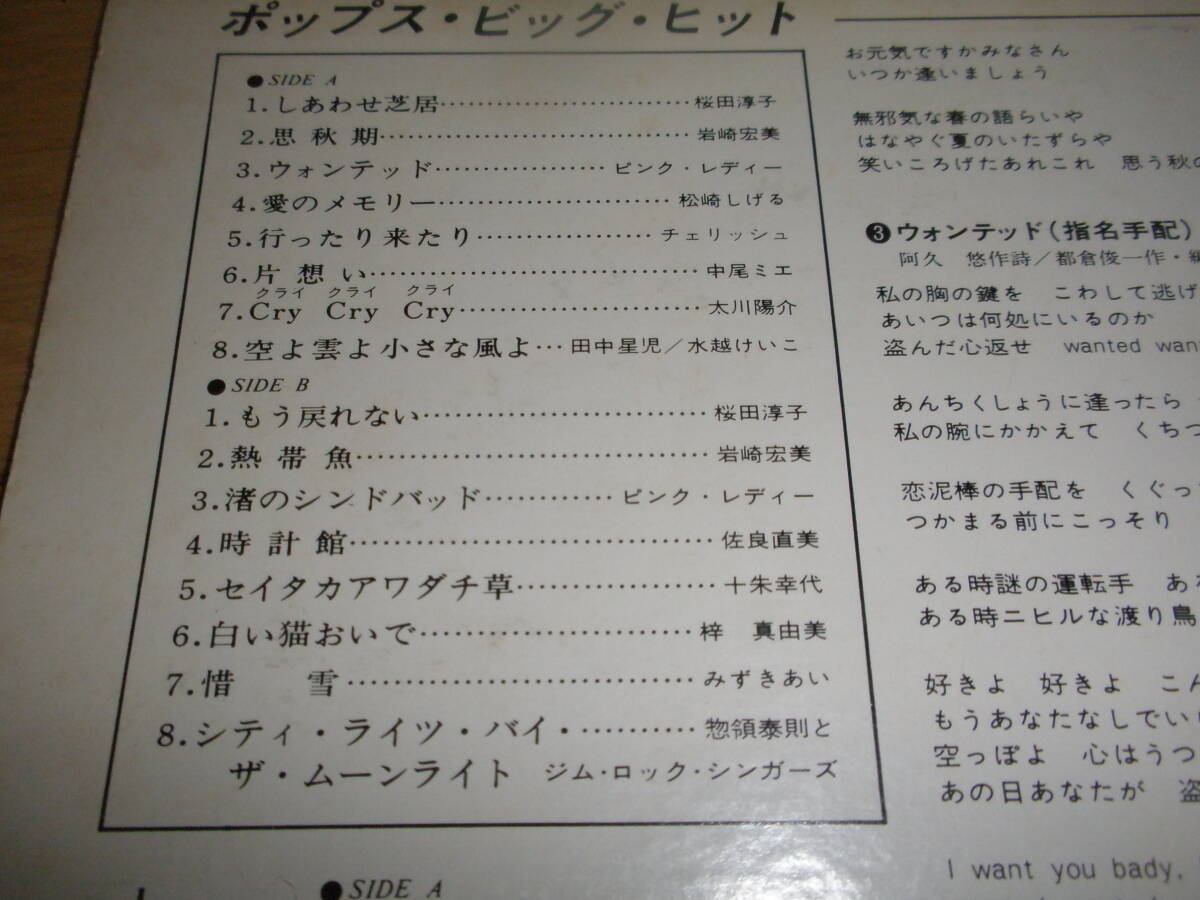 ポップス・ビッグ・ヒット
●SIDE A
1.しあわせ芝居…………………………桜田淳子
2.思秋期……………………………岩崎宏美
3.ウォンテッド………………ピンク・レディー
4.愛のメモリー……………………松崎しげる
5.行ったり来たり………………チェリッシュ
6.片想い……………………………中尾ミエ
クライ クライ クライ
7.Cry Cry Cry……………………太川陽介
8.空よ雲よ小さな風よ…田中星児／水越けいこ
●SIDE B
1.もう戻れない…………………………桜田淳子
2.熱帯魚………………………………岩崎宏美
3.渚のシンドバッド…………ピンク・レディー
4.時計館………………………………佐良直美
5.セイタカアワダチ草…………………十朱幸代
6.白い猫おいで………………………梓 真由美
7.惜 雪………………………………みずきあい
8.シティ・ライツ・バイ・…………惣領泰則と
ザ・ムーンライト ジム・ロック・シンガーズ
お元気ですかみなさん
いつか逢いましょう
無邪気な春の語らいや
はなやぐ夏のいたずらや
笑いころげたあれこれ 思う秋の
❸ウォンテッド(指名手配)
阿久 悠作詩／都倉俊一作・編
私の胸の鍵を こわして逃げ
あいつは何処にいるのか
盗んだ心返せ wanted wan
あんちくしょうに逢ったら
私の腕にかかえて くちつ
恋泥棒の手配を くぐっ
つかまる前にこっそり
ある時謎の運転手 ある
ある時ニヒルな渡り鳥
好きよ 好きよ こん
もうあなたなしでい
空っぽよ 心はうつ
あの日あなたが 盗
I want you bady,
●SIDE A